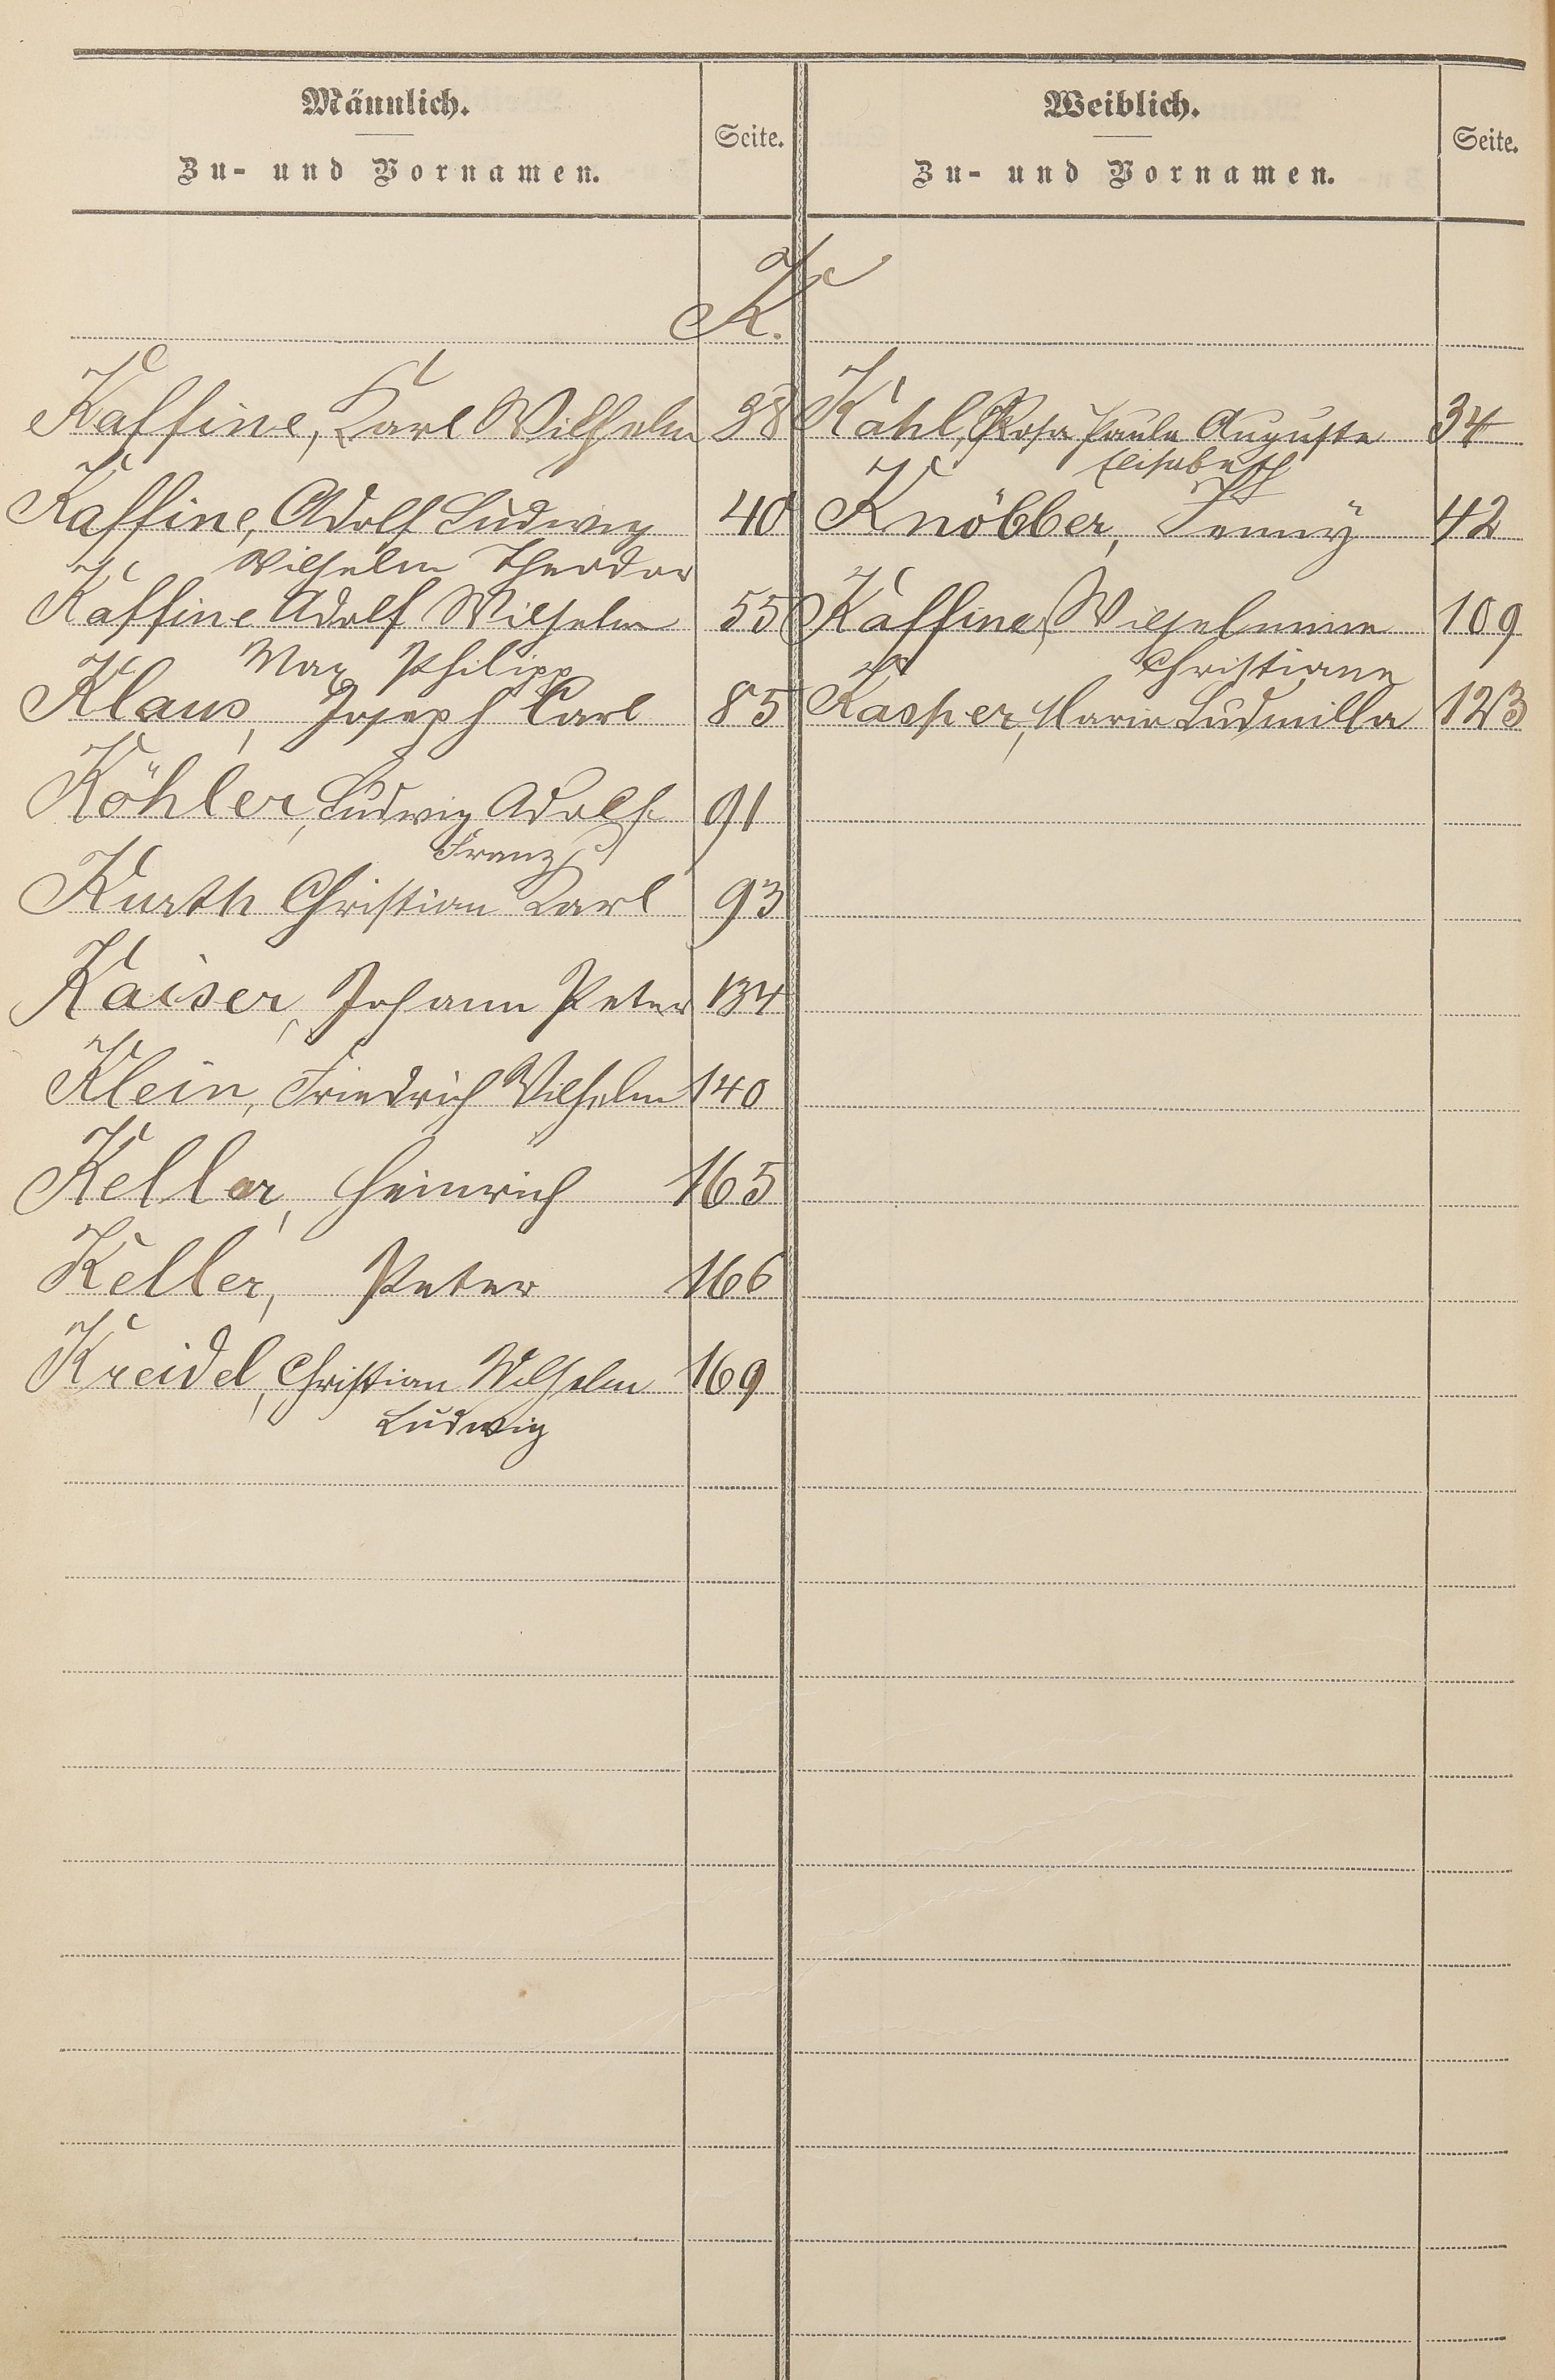 Männlich.
Zu- und Vornamen.
Seite.
Weiblich.
Zu- und Vornamen.
Seite.
K.
Kaffine, Karl Wilhelm 38
Kaffine, Adolf Ludwig 40
Wilhelm Theodor
Kaffine Adolf Wilhelm 55
Max Philipp
Klaus, Joseph Carl 85
Köhler, Ludwig Adolf 91
Franz
Kurth Christian Karl 93
Kaiser, Johann Peter 134
Klein, Friedrich Wilhelm 140
Keller, Heinrich 165
Keller, Peter 166
Kreidel, Christian Wilhelm 169
Ludwig
Kahl, Rosa Paula Auguste 34
Elisabeth
Knöbber, Jenny 42
Kaffine, Wilhelmine 109
Christiane
Kasper, Maria Ludmilla 123